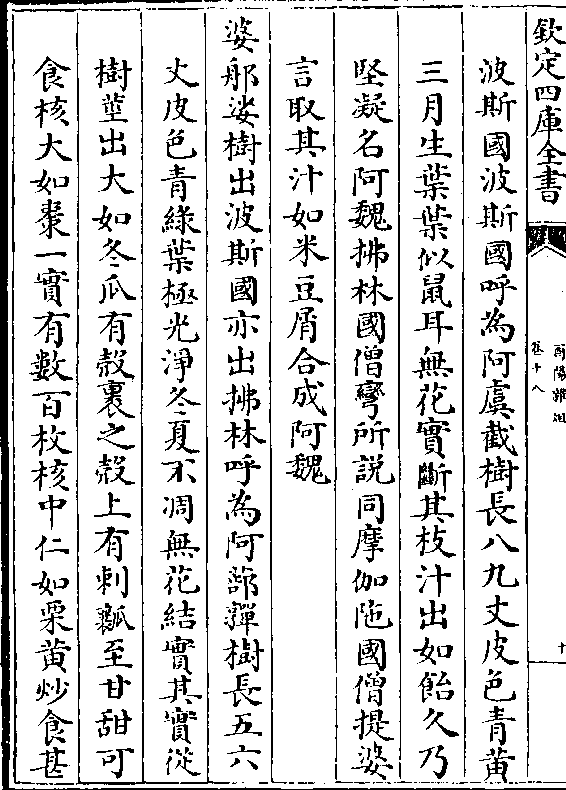 欽定四庫全書
酉陽雜俎
卷十八
十
波斯國波斯國呼為阿虞截樹長八九丈皮色青黃
三月生葉葉似鼠耳無花實斷其枝汁出如飴久乃
堅凝名阿魏拂林國僧彎所說同摩伽陁國僧提婆
言取其汁如米豆屑合成阿魏
婆那娑樹出波斯國亦出拂林呼為阿蔀嚲樹長五六
丈皮色青綠葉極光淨冬夏不凋無花結實其實從
樹莖出大如冬瓜有殼裹之殼上有刺瓤至甘甜可
食核大如棗一實有數百枚核中仁如栗黃炒食甚